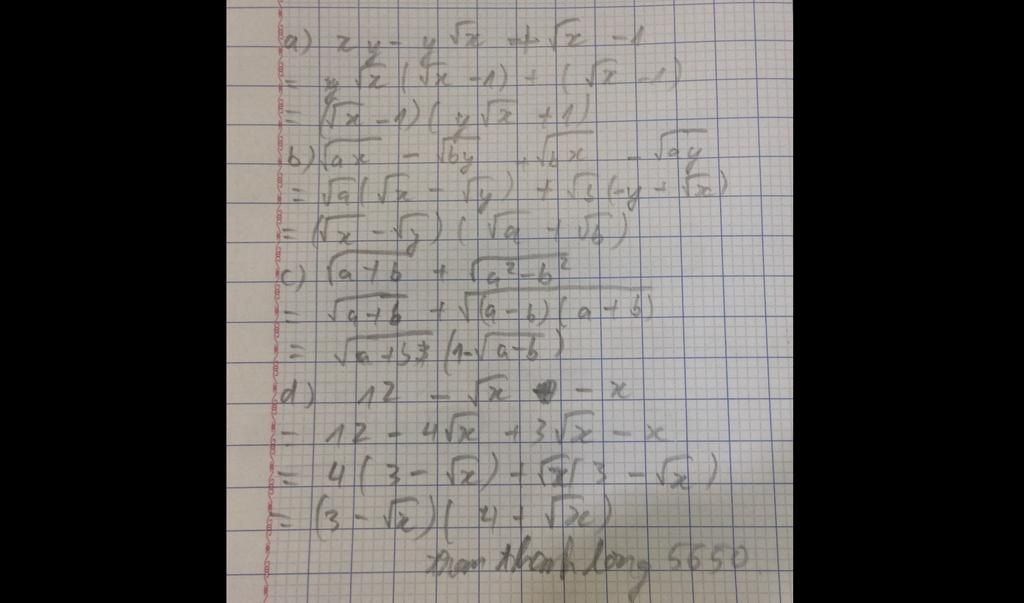 a) xy - y√x + √x - 1
= y√x (√x - 1) + (√x - 1)
= (√x - 1)( y√x + 1)
b) √ax - √by + √bx - √ay
= √a(√x - √y) + √b(-y + √x)
= (√x - √y) ( √a + √b)
c) √(a+b) + √(a² - b²)
= √(a+b) + √((a-b)(a+b))
= √(a+b) (1-√(a-b))
d) 12 - √x - x
= 12 - 4√x + 3√x - x
= 4( 3 - √x) + √x( 3 - √x)
= (3 - √x)( 4 + √x)
tran thanh long 5650